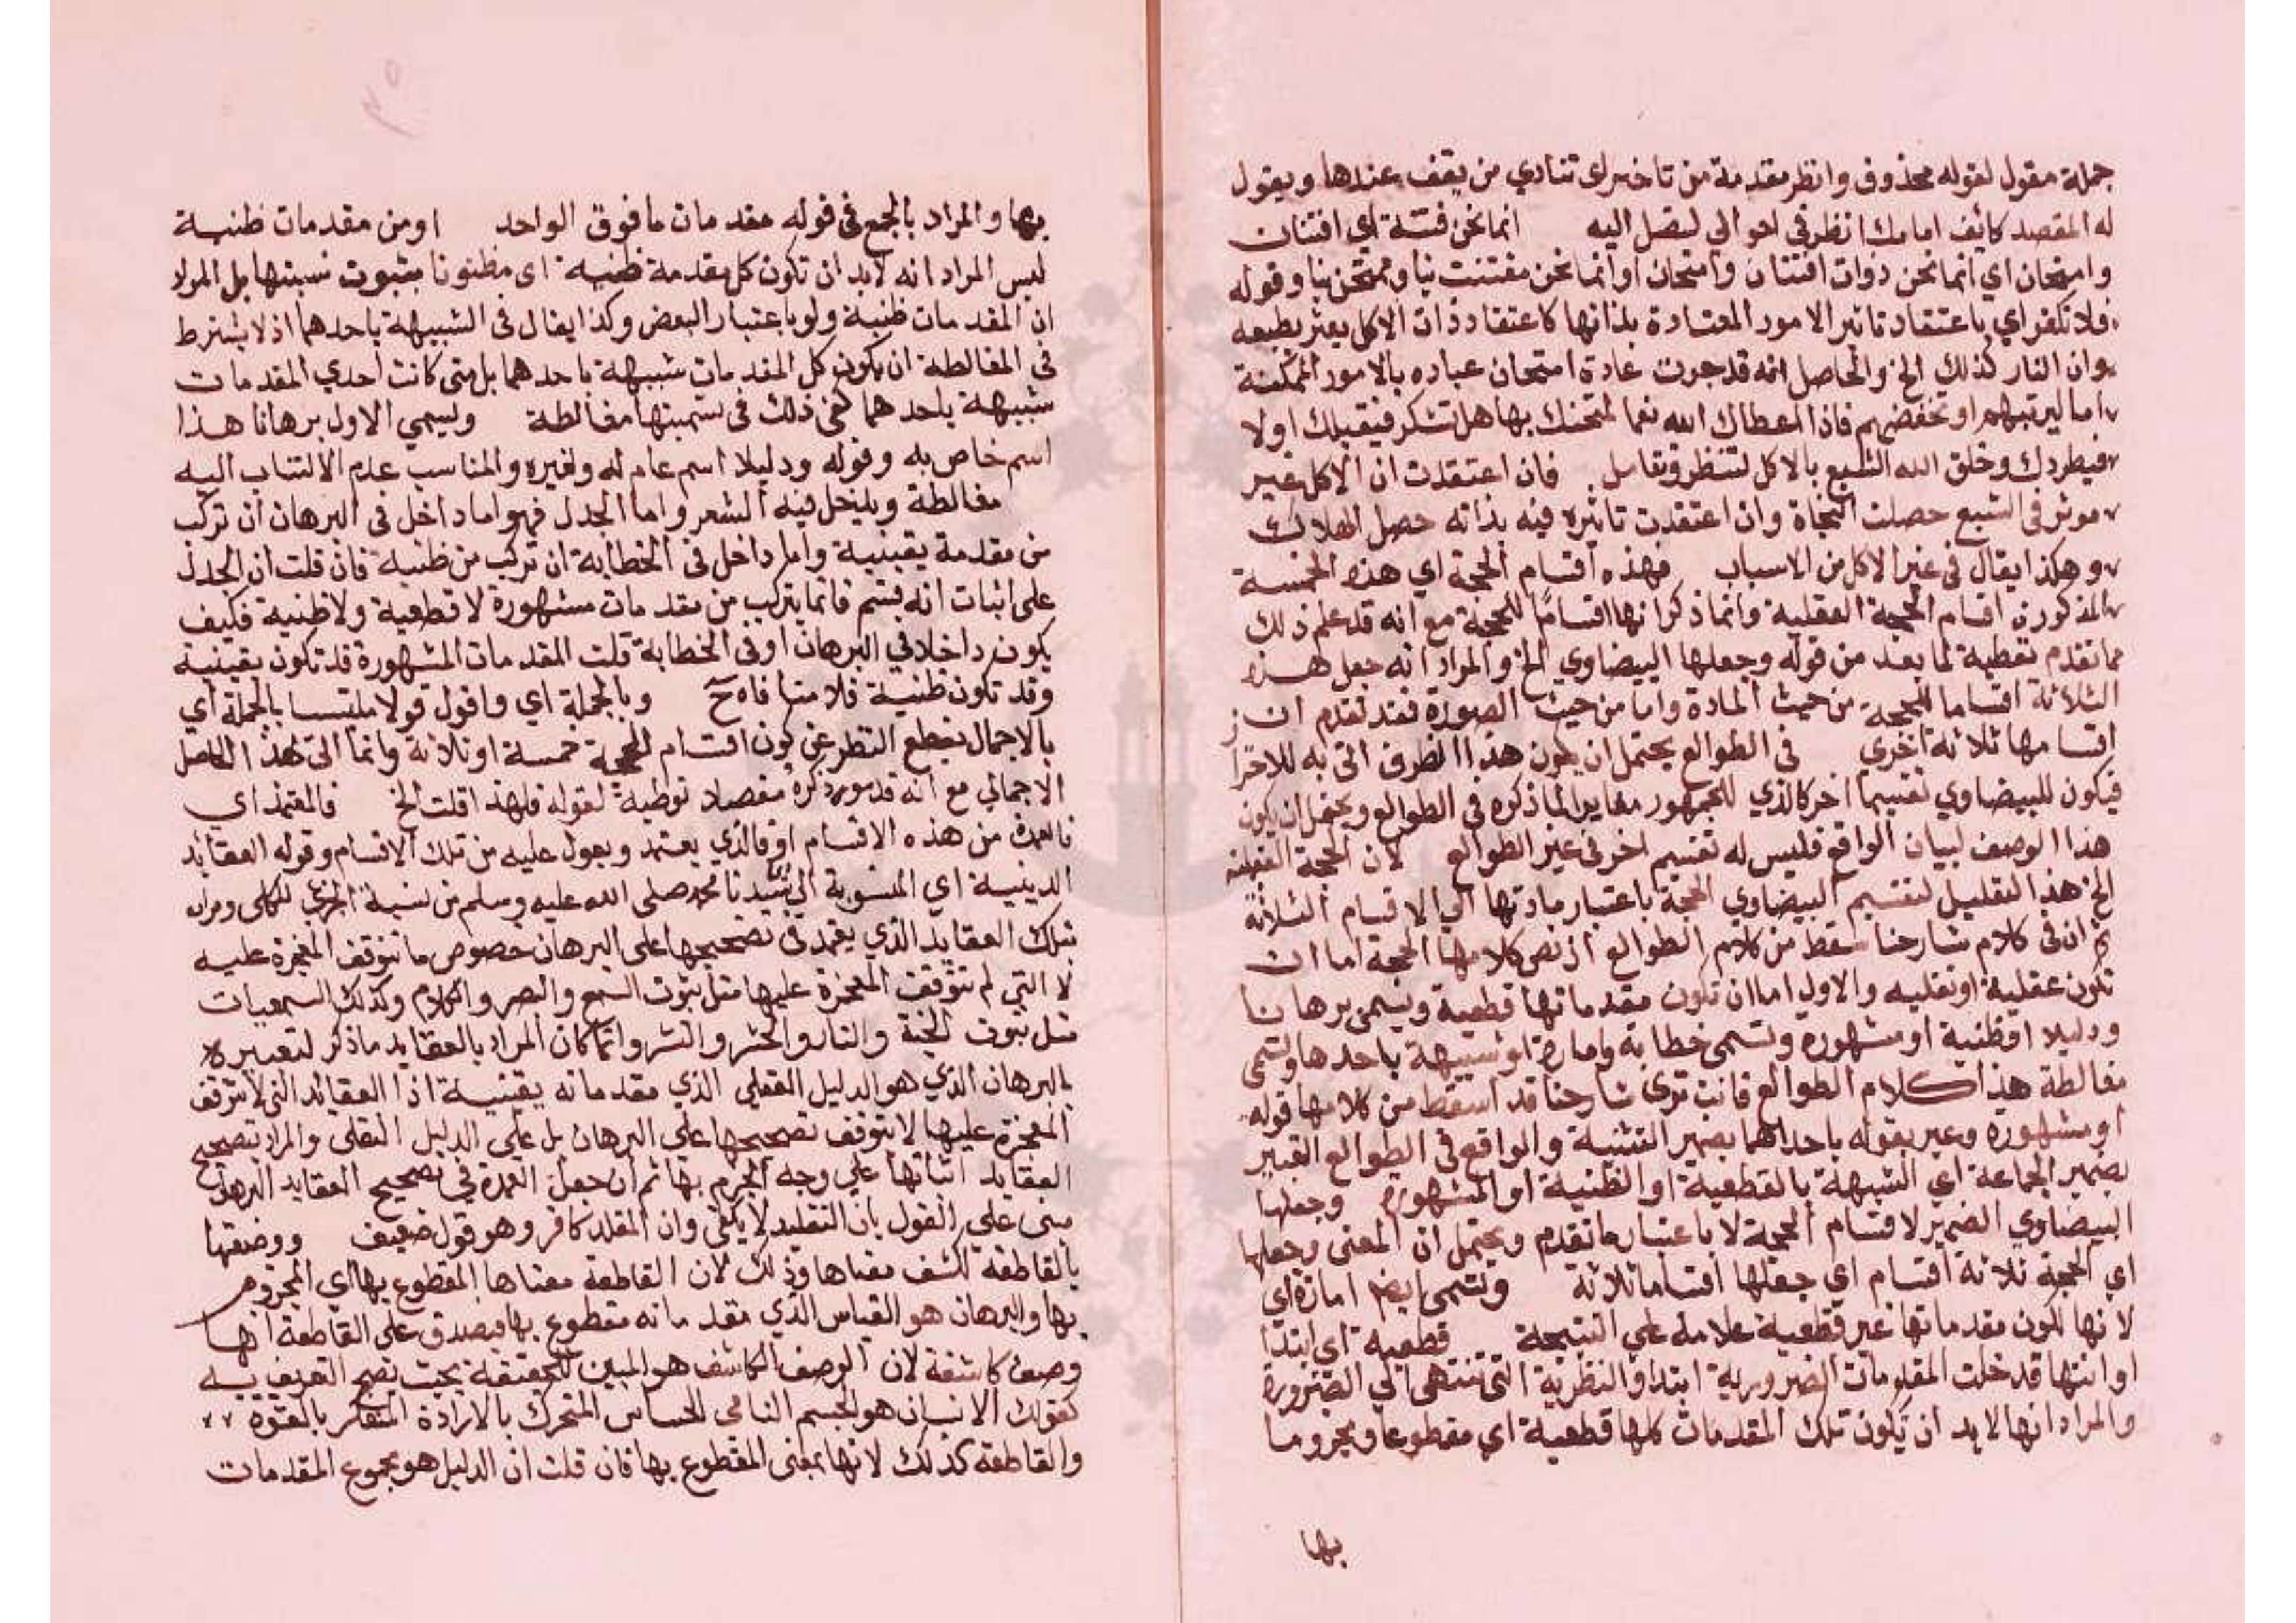 جملة مقول لقوله محذوف وانظر مقدمة من تاخير اي تنادي من يقف عندها ويقول
له المقصد كائف امامك انظر في احوالي لتصل اليه انما نحن فتنة اي افتتان
وامتحان اي انما نحن ذوات افتتان وامتحان او انما نحن مفتتنت بنا وممتحن بنا وقوله
فلا تكفر اي باعتقاد تاثير الامور المعتادة بذاتها كاعتقاد ذات الاكل يعثر بطبعه
وان النار كذلك الخ والحاصل انه قد جرت عادة امتحان عباده بالامور الممكنة
اما ليرتبهم او يخفضهم فاذا اعطاك الله نعما امتحنك بها هل تشكر فيقبلك اولا
فيطردك وخلق الله الشبع بالاكل لتنظر وتقامل فان اعتقدت ان الاكل غير
موثر في الشبع حصلت النجاة وان اعتقدت تاثيره فيه بذاته حصل الهلاك
وهكذا يقال في غير الاكل من الاسباب فهذه اقسام الحجة اي هذه الخمسة
المذكورة اقسام الحجة العقلية وانما ذكر انها اقساما للحجة مع انه قد علم ذلك
مما تقدم توطية لما بعد من قوله وجعلها البيضاوي الخ والمراد انه جعل هذه
الثلاثة اقساما للحجة من حيث المادة واما من حيث الصورة فقد تقدم ان
اقسامها ثلاثة اخرى في الطوالع يحتمل ان يكون هذا الظرف اتى به للاحترا
فيكون للبيضاوي تقسيما اخر كالذي للجمهور مغايرا لما ذكره في الطوالع ويحتمل ان يكون
هذا الوصف لبيان الواقع فليس له تقسيم اخر في غير الطوالع لان الحجة العقلية
الخ هذا التقليل لتقسيم البيضاوي الحجة باعتبار مادتها الي الاقسام الثلاثة
ثم ان في كلام شارحنا سقط من كلام الطوالع اذ نص كلامها الحجة اما ان
تكون عقلية او نقليه والاول اما ان تكون مقدماتها قطعية ويسمى برهانا
ودليلا او ظنية او مشهورة وتسمى خطابة وامارة او شبيهة باحدها وتسمى
مغالطة هذا كلام الطوالع فانت ترى شارحنا قد اسقط من كلامها قوله
او مشهورة وعبر بقوله باحداهما بضمير التثنية والواقع في الطوالع التعبير
بضمير الجماعة اي الشبيهة بالقطعية او الظنية او المشهورة وجعلها
البيضاوي الضمير لاقسام الحجة لا باعتبار ما تقدم ويحتمل ان المعنى وجعلها
اي الحجة ثلاثة اقسام اي جعلها اقساما ثلاثة وتسمى ايضا امارة اي
لانها لكون مقدماتها غير قطعية علامة على النتيجة قطعية اي ابتدا
او انتها قد خلت المقدمات الضرورية ابتدا والنظرية التي تنتهي الى الضرورة
والمراد انها لا بد ان تكون تلك المقدمات كلها قطعية اي مقطوعا ومجزوما
بها
بها والمراد بالجمع في قوله مقدمات ما فوق الواحد او من مقدمات ظنية
ليس المراد انه لابد ان تكون كل مقدمة ظنية اى مظنونا بثبوت نسبتها بل المراد
ان المقدمات ظنية ولو باعتبار البعض وكذا يقال في الشبيهة باحدهما اذ لا يشترط
في المغالطة ان يكون كل المقدمات شبيهة باحدهما بل متى كانت احدي المقدمات
شبيهة باحدهما كفى ذلك في تسميتها مغالطة ويسمي الاول برهانا هذا
اسم خاص به وقوله ودليلا اسم عام له ولغيره والمناسب عدم الالتفات اليه
مغالطة ويدخل فيه الشعر واما الجدل فهو اما داخل في البرهان ان تركب
من مقدمة يقينية واما داخل في الخطابة ان تركب من ظنية فان قلت ان الجدل
على اثبات انه قسم فانما يتركب من مقدمات مشهورة لا قطعية ولا ظنية فكيف
يكون داخلا في البرهان او في الخطابة قلت المقدمات المشهورة قد تكون يقينية
وقد تكون ظنية فلا منافاه ح وبالجملة اي واقول قولا ملتبسا بالجملة اي
بالاجمال بقطع النظر عن كون اقسام الحجة خمسة او ثلاثة وانما اتى بهذا الحاصل
الاجمالي مع انه قد مر ذكره مفصلا توطية لقوله فلهذا قلت الخ فالمعتمد اي
فالعمدة من هذه الاقسام او فالذي يعتمد ويعول عليه من تلك الاقسام وقوله العقايد
الدينية اي المنسوبة الى سيدنا محمد صلى الله عليه وسلم من نسبة الجزئي للكلى ومراده
بتلك العقايد الذي يعتمد في تصحيحها على البرهان خصوص ما تتوقف المعجزة عليه
لا التي لم تتوقف المعجزة عليها مثل ثبوت السمع والبصر والكلام وكذلك السمعيات
مثل ثبوت الجنة والنار والحشر والنشر وانما كان المراد بالعقايد ماذكر لتعبيره
بالبرهان الذي هو الدليل العقلي الذي مقدماته يقينية اذا العقائد التي لا تتوقف
المعجزة عليها لا يتوقف تصحيحها على البرهان بل على الدليل النقلى والمراد بتصحيح
العقايد اثباتها على وجه الجزم بها ثم ان جعل العمدة في تصحيح العقايد البرهان
مبنى على القول بان التقليد لا يكفي وان المقلد كافر وهو قول ضعيف ووصفها
بالقاطعة لكشف معناها وذلك لان القاطعة معناها المقطوع بها اي المجزوم
بها والبرهان هو القياس الذي مقدماته مقطوع بها فيصدق على القاطعة انها
وصف كاشفة لان الوصف الكاشف هو المبين للحقيقة بحيث يصح التعريف به
كقولك الانسان هو الجسم النامي الحساس المتحرك بالارادة المتفكر بالقوة
والقاطعة كذلك لانها بمعنى المقطوع بها فان قلت ان الدليل هو مجموع المقدمات